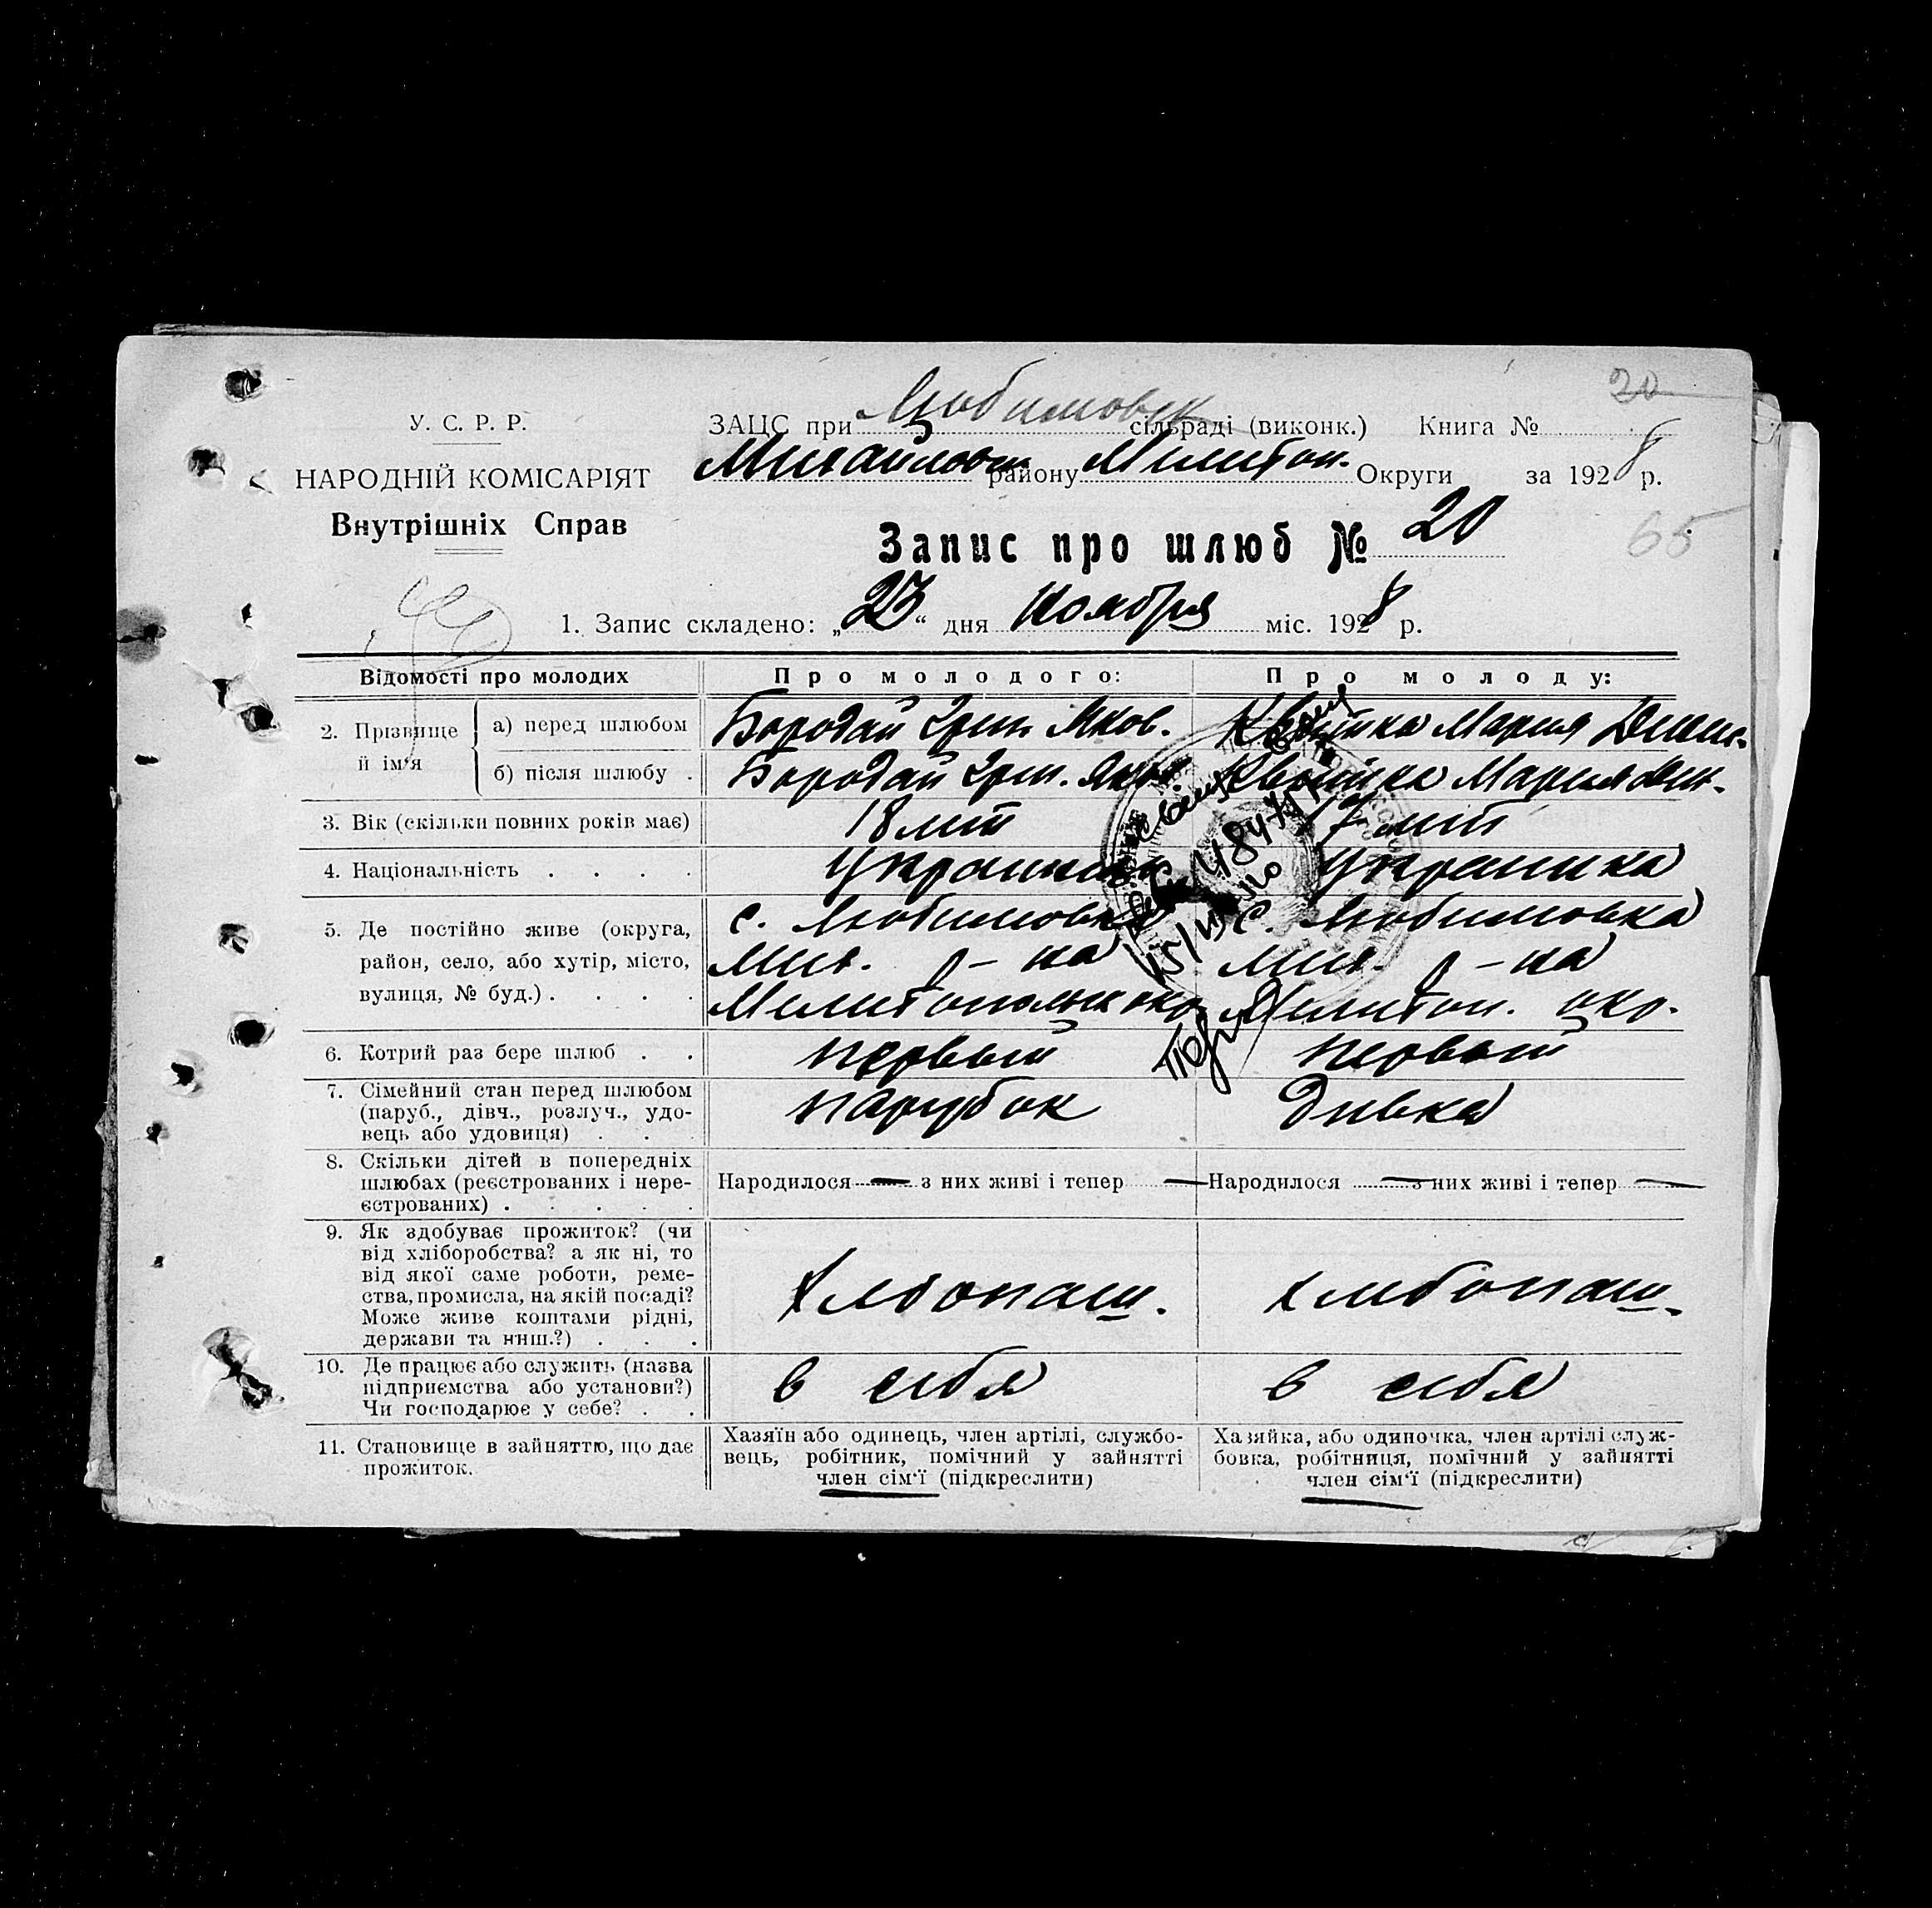 20
У. С. Р. Р.
ЗАЦС при Любимовск сільраді (виконк.) Книга №
НАРОДНІЙ КОМІСАРІЯТ
Внутрішніх Справ
Михайловск району Милитоп. Округи за 1928 р.
65
Запис про шлюб № 20
1. Запис складено: „23“ дня Ноября міс. 1928 р.
Відомості про молодих
Про молодого:
Про молоду:
2. Прізвище й ім'я
а) перед шлюбом
Бородай Григ. Яков.
Квитка Мария Денис.
б) після шлюбу .
Бородай Григ. Яков
Квитка Мария Ден.
3. Вік (скільки повних років має)
18 лит
17 лит
4. Національність . . . .
Украинец
Украинка
5. Де постійно живе (округа,
район, село, або хутір, місто,
вулиця, № буд.) . . . .
с. Любимовка
Мих. р-на
Милитопольск окр.
с. Любимовка
Мих. р-на
Милитоп. окр.
6. Котрий раз бере шлюб . .
первый
первый
7. Сімейний стан перед шлюбом
(паруб., дівч., розлуч., удо-
вець або удовиця) . . .
парубок
Дивка
8. Скільки дітей в попередніх
шлюбах (реєстрованих і нере-
єстрованих) . . . . .
Народилося — з них живі і тепер —
Народилося — з них живі і тепер —
9. Як здобуває прожиток? (чи
від хліборобства? а як ні, то
від якої саме роботи, реме-
ства, промисла, на якій посаді?
Може живе коштами рідні,
держави та инш.?) . . .
Хлібопаш.
Хлибопаш.
10. Де працює або служить (назва
підприємства або установи?)
Чи господарює у себе? . .
в себя
в себя
11. Становище в зайняттю, що дає
прожиток.
Хазяїн або одинець, член артілі, службо-
вець, робітник, помічний у зайнятті
член сім'ї (підкреслити)
Хазяйка, або одиночка, член артілі служ-
бовка, робітниця, помічний у зайнятті
член сім'ї (підкреслити)